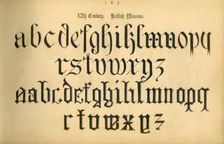 12th Century. British Museum.
abcdefghiklmnopq
rstuvwxyz
abcdefghiklmnopq
rstuvwxyz